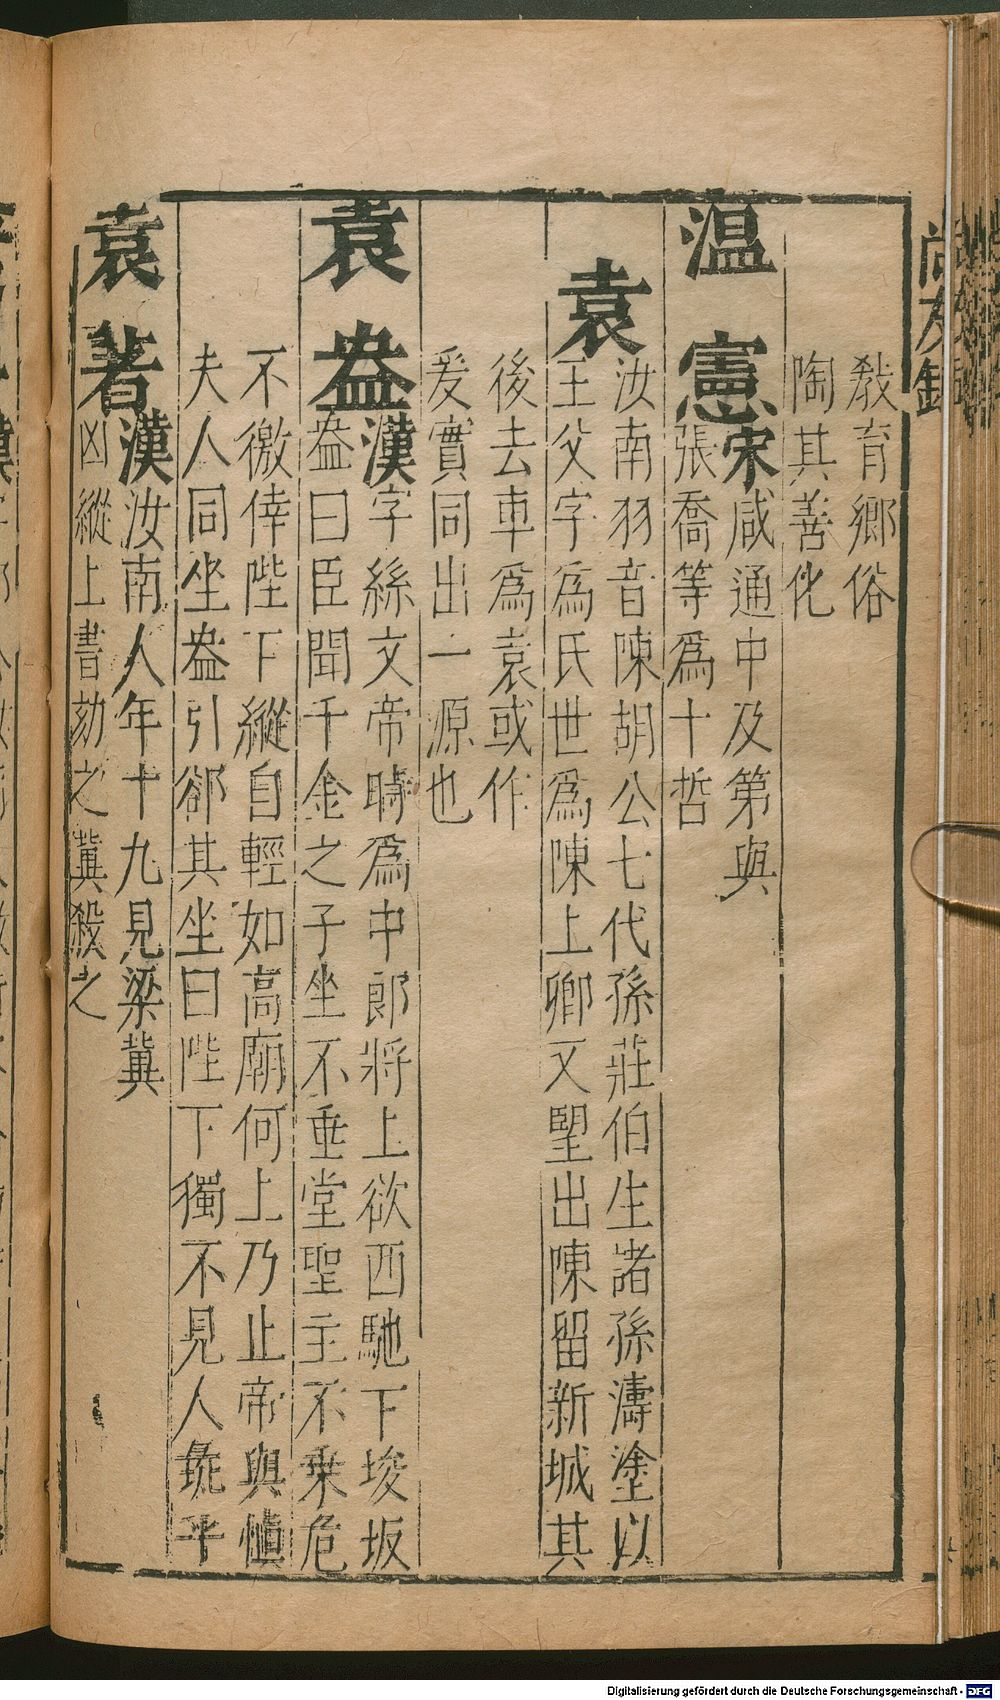 尚友錄
敎育鄉俗
陶其善化
溫憲
宋咸通中及第與
張喬等爲十哲
袁
汝南羽音陳胡公七代孫莊伯生諸孫濤塗以
王父字爲氏世爲陳上卿又望出陳留新城其
後去車爲袁或作
爰實同出一源也
袁盎
漢字絲文帝時爲中郎將上欲西馳下埈坂
盎曰臣聞千金之子坐不垂堂聖主不乗危
不徼倖陛下縱自輕如高廟何上乃止帝與慎
夫人同坐盎引郤其坐曰陛下獨不見人彘乎
袁著
漢汝南人年十九見梁冀
凶縱上書劾之冀殺之
Digitalisierung gefördert durch die Deutsche Forschungsgemeinschaft - DFG